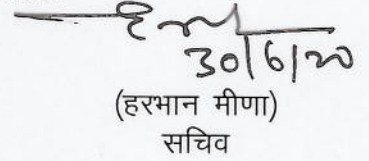 30/6/20
(हरभान मीणा)
सचिव